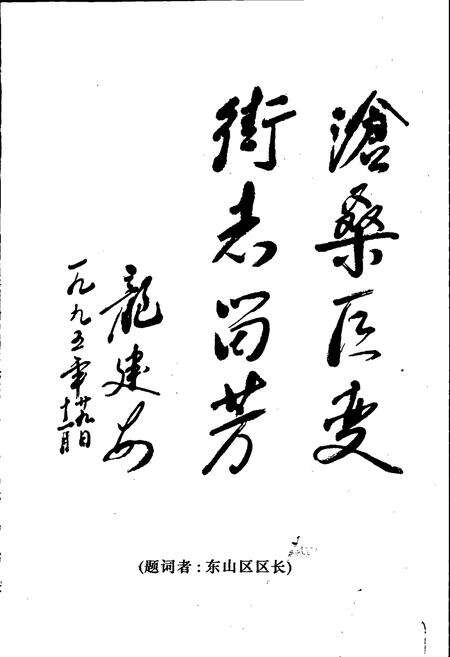 滄桑巨变
街志留芳
龍建安
一九九五年十一月廿九日
(题词者:东山区区长)